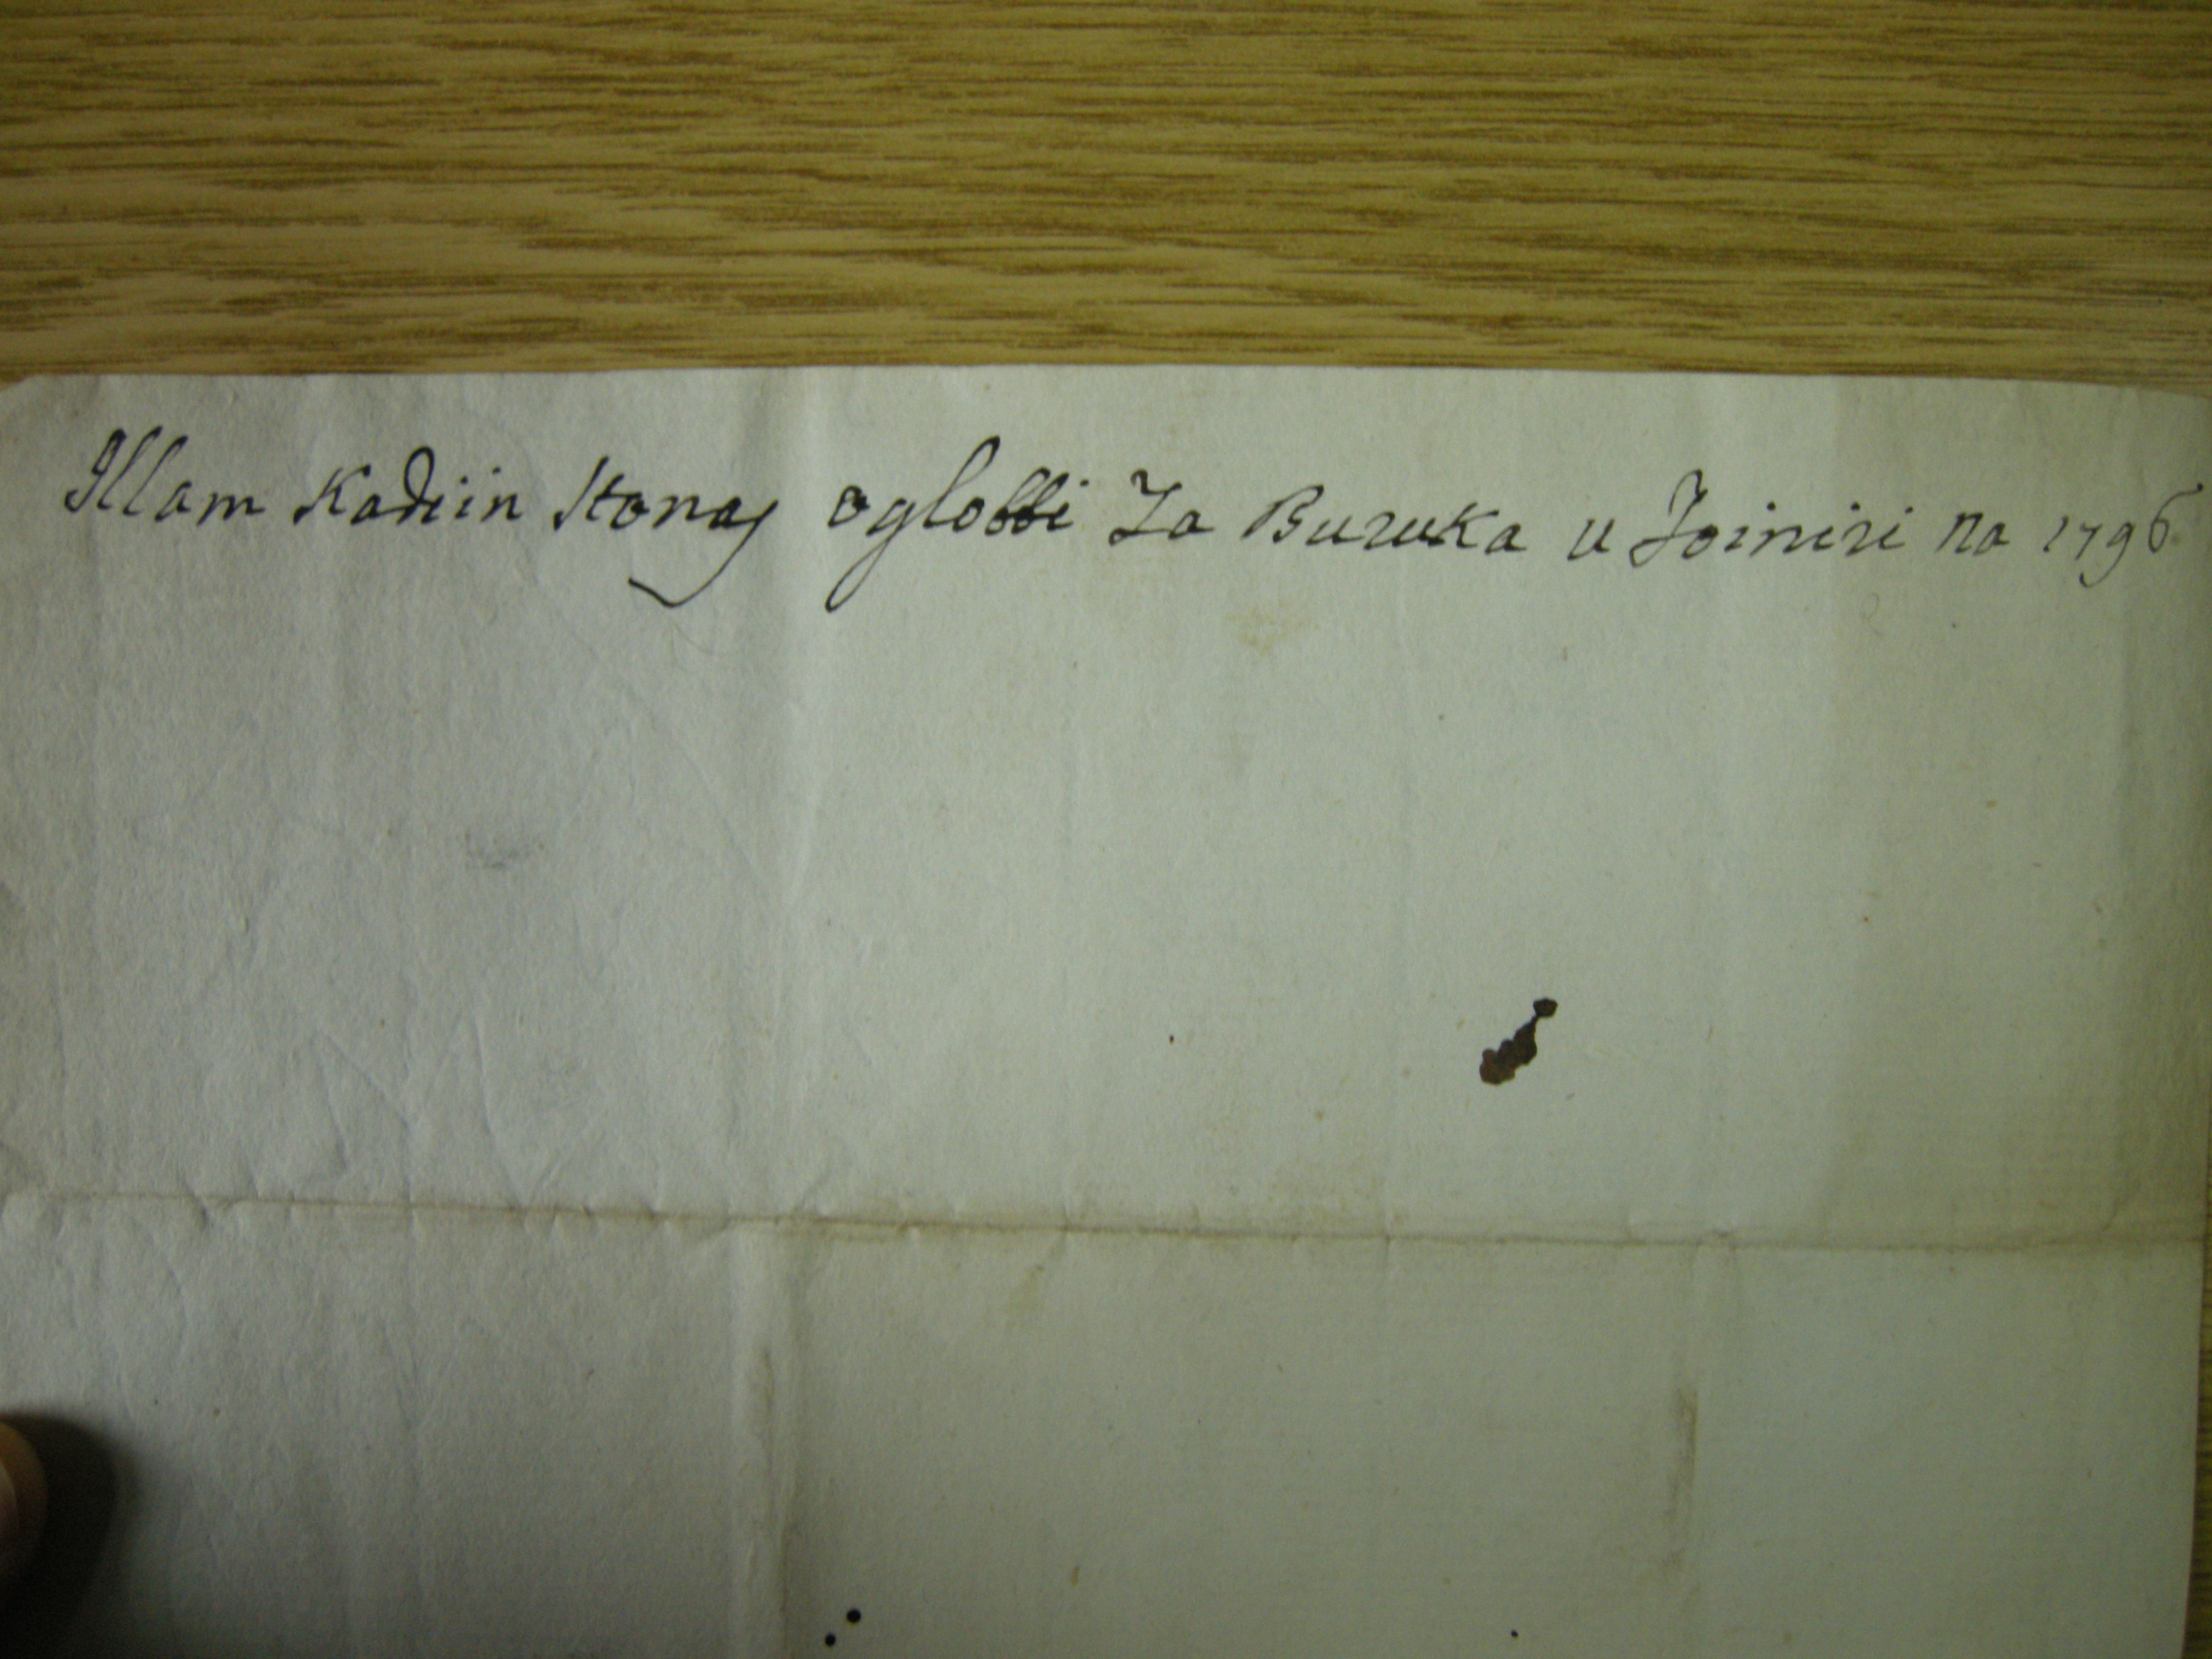 Illam Kadiin Stonaj oglobbi Za Buruka u Foinici na 1796